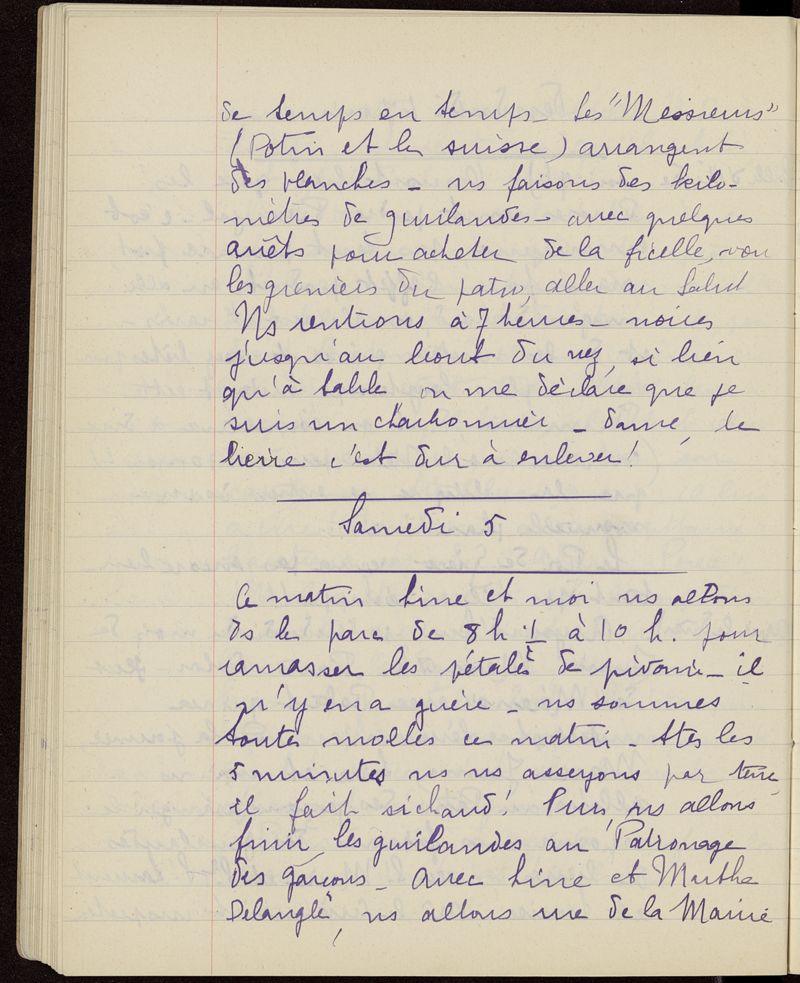 de temps en temps – les "Messieurs"
(Potin et le suisse) arrangent
des planches – ns faisons des kilo-
mètres de guirlandes – avec quelques
arrêts pour acheter de la ficelle, voir
les greniers du patro, aller au Salut
Ns rentrons à 7 heures – noires
jusqu'au bout du nez, si bien
qu'à table on me déclare que je
suis un charbonnier – dame, le
lierre c'est dur à enlever!
Samedi 5
Ce matin Line et moi ns allons
ds le parc de 8 h ½ à 10 h. pour
ramasser les pétales de pivoine – il
n'y en a guère – ns sommes
toutes molles ce matin – Ttes les
5 minutes ns ns asseyons par terre
il fait si chaud! Puis, ns allons
finir les guirlandes au Patronage
des garçons – Avec Line et Marthe
Delangle, ns allons rue de la Mairie